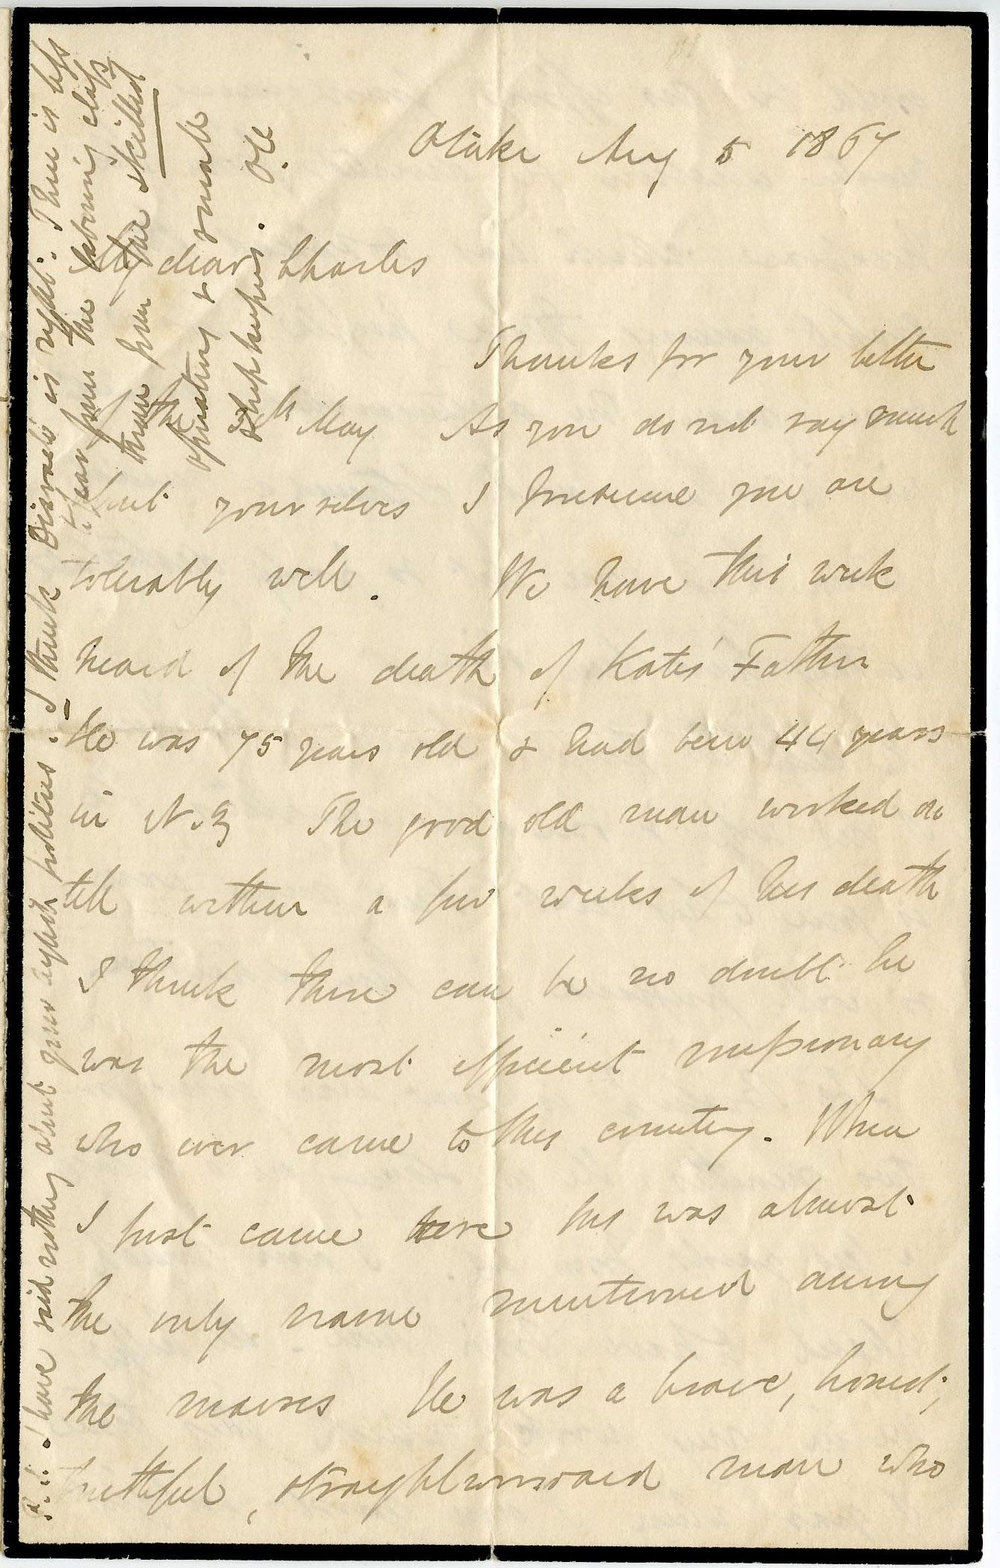 Otaki Aug 5 1867
My dear Charles
Thanks for your letter
of the May As you do not say much
about yourselves I presume you are
tolerably well. We have this week
heard of the death of Kate's Father
He was 75 years old & had been 44 years
in N.Z The good old man worked on
till within a few weeks of his death
I think there can be no doubt he
was the most efficient missionary
who ever came to this country. When
I first came here his was almost
the only name mentioned among
the maories He was a brave, honest,
truthful, straightforward man who
P.S. I have said nothing about your English politics. I think Disraeli is right. There is less
to fear from the laboring class
than from the skilled
operatives & small
shopkeepers. OH.